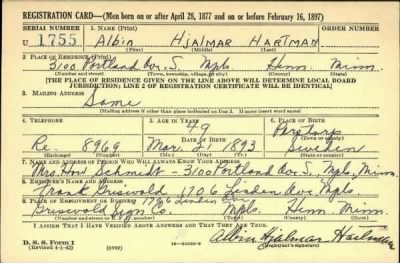 REGISTRATION CARD—(Men born on or after April 28, 1877 and on or before February 16, 1897)
SERIAL NUMBER 1. NAME (Print) ORDER NUMBER
U 1755 Albin Hjalmar Hartman
(First) (Middle) (Last)
2. PLACE OF RESIDENCE (Print)
3100 Portland Ave. S. Mpls Henn. Minn.
(Number and street) (Town, township, village, or city) (County) (State)
[THE PLACE OF RESIDENCE GIVEN ON THE LINE ABOVE WILL DETERMINE LOCAL BOARD
JURISDICTION; LINE 2 OF REGISTRATION CERTIFICATE WILL BE IDENTICAL]
3. MAILING ADDRESS
Same
[Mailing address if other than place indicated on line 2. If same insert word same]
4. TELEPHONE 5. AGE IN YEARS 6. PLACE OF BIRTH
49 Perstorp
DATE OF BIRTH (Town or county)
Re. 8969 Mar. 21 1893 Sweden
(Exchange) (Number) (Mo.) (Day) (Yr.) (State or country)
7. NAME AND ADDRESS OF PERSON WHO WILL ALWAYS KNOW YOUR ADDRESS
Mrs. How Schmidt - 3100 Portland Ave S., Mpls, Minn.
8. EMPLOYER'S NAME AND ADDRESS
Frank Griswold 1706 Linden Ave Mpls.
9. PLACE OF EMPLOYMENT OR BUSINESS 1706 Linden Ave
Griswold Sign Co. Mpls. Henn. Minn.
(Number and street or R. F. D. number) (Town) (County) (State)
I AFFIRM THAT I HAVE VERIFIED ABOVE ANSWERS AND THAT THEY ARE TRUE.
D. S. S. Form 1
(Revised 4-1-42) (over) Albin Hjalmar Hartman
(Registrant's signature)